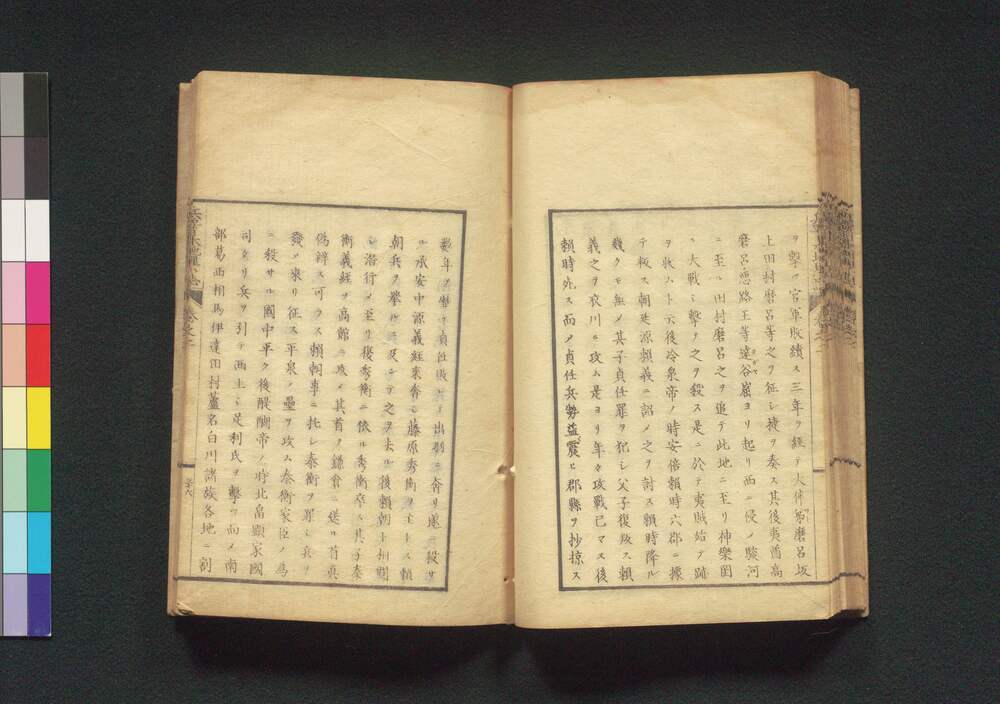 ヲ擊ツ官軍敗績ス三年ヲ經テ大伴弟麿呂坂
上田村麿呂等之ヲ征シ捷ヲ奏ス其後夷酋高
磨呂悪路王等達谷窟ヨリ起リ西ニ侵ノ駿河
ニ至ル田村麿呂之ヲ追テ此地ニ至リ神樂岡
ニ大戰シ擊ヲ之ヲ殺ス是ニ於テ夷賊始ア跡
ヲ收ムト云後冷泉帝ノ時安倍賴時六郡ニ據
テ叛ス朝廷源賴義ニ詔メ之ヲ討ス賴時降ル
幾クモ無メ其子貞任罪ヲ犯シ父子復叛ス賴
義之ヲ衣川ニ攻ム是ヨリ年々攻戰已マス後
賴時死ス而メ貞任兵勢益震ヒ郡縣ヲ抄掠ス
數年ヲ歷テ貞任敗レ出羽ニ奔リ遂ニ殺サ
ル承安中源義經來奔シ藤原秀衡ヲ主トス賴
朝兵ヲ擧ルニ及シテ之ヲ去ル後賴朝ト相鬩
シ潜行メ至リ復秀衡ニ依ル秀衡卒ス其子泰
衡義經ヲ高館ニ攻メ其首ヲ鎌倉ニ送ル首眞
偽辨ス可ラス賴朝事ニ托シ泰衡ヲ罪シ兵ヲ
發メ來リ征ス平泉ノ壘ヲ攻ム泰衡家臣ノ爲
ニ殺サル國中平ク後醍醐帝ノ時北畠顯家國
司タリ兵ヲ引テ西上シ足利氏ヲ擊ツ而メ南
部葛西相馬伊達田村蘆名白川諸族各地ニ割